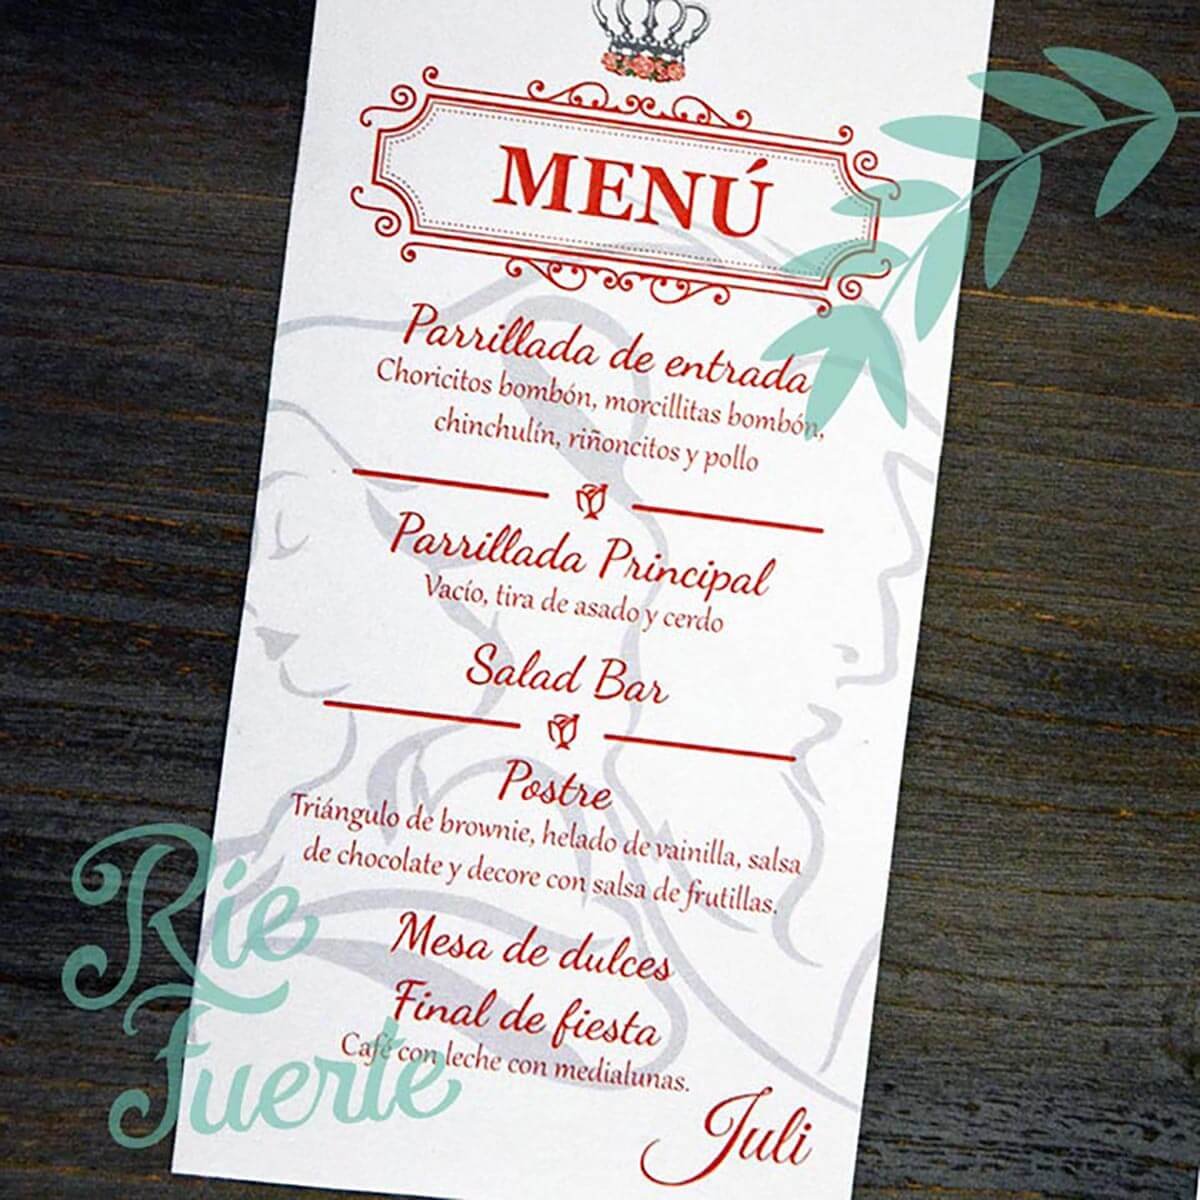 MENÚ
Parrillada de entrada
Choricitos bombón, morcillitas bombón,
chinchulín, riñoncitos y pollo
Parrillada Principal
Vacío, tira de asado y cerdo
Salad Bar
Postre
Triángulo de brownie, helado de vainilla, salsa
de chocolate y decore con salsa de frutillas.
Mesa de dulces
Final de fiesta
Café con leche con medialunas.
Juli
Ríe
Fuerte